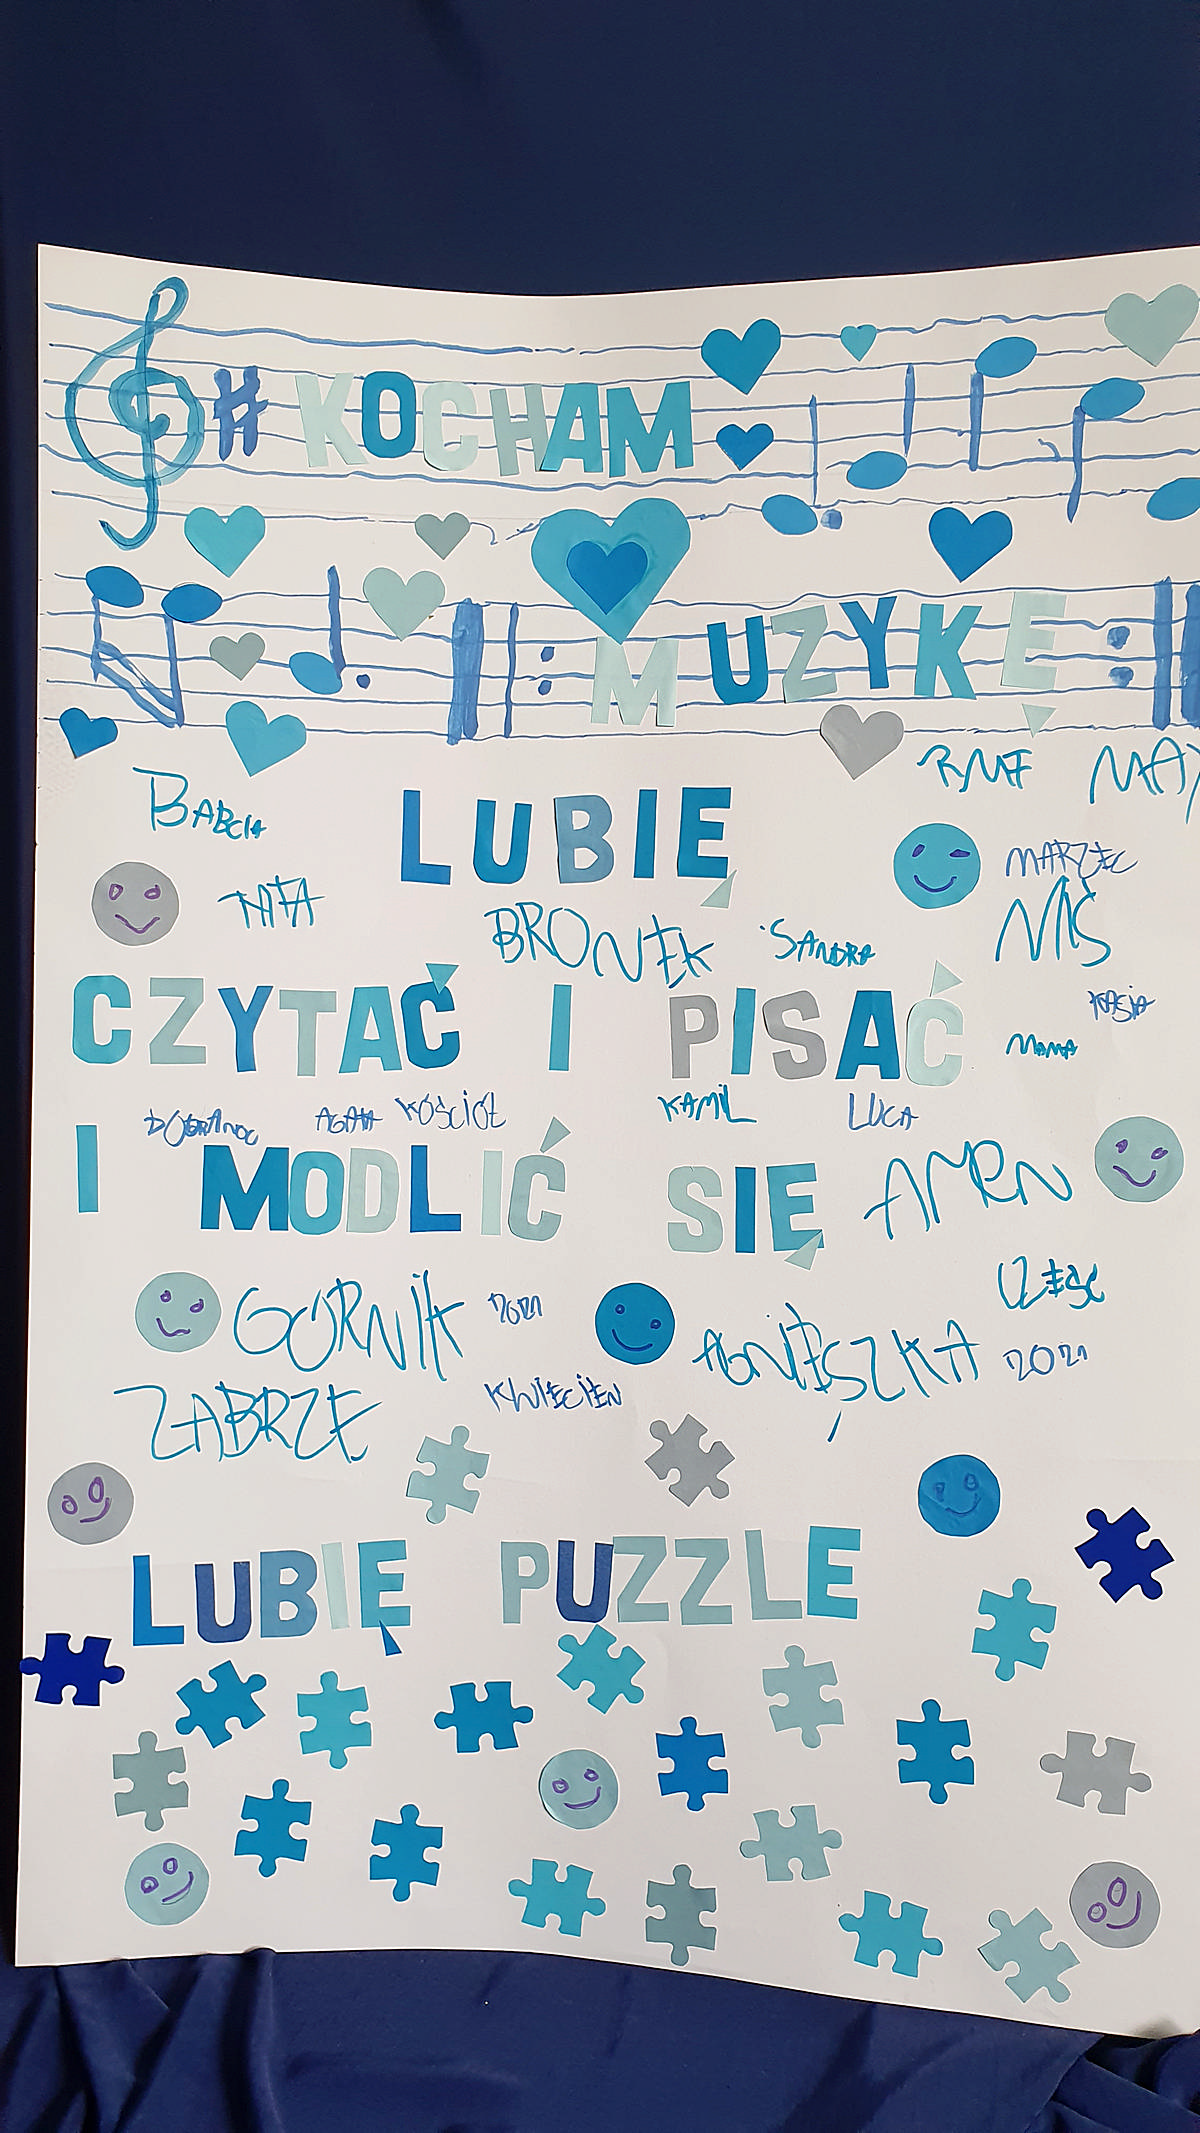 # KOCHAM
MUZYKĘ
RMF MAX
BABCIA
LUBIĘ
MARZEC
TATA
BRONEK SANDRA
MIŚ
CZYTAĆ I PISAĆ
KASIA
MAMA
DOBRANOC AGATA KOŚCIOŁ KAMIL LUCA
I MODLIĆ SIĘ
AMEN
CZEŚĆ
GÓRNIK 2021
AGNIESZKA 2021
ZABRZE KWIECIEŃ
LUBIĘ PUZZLE